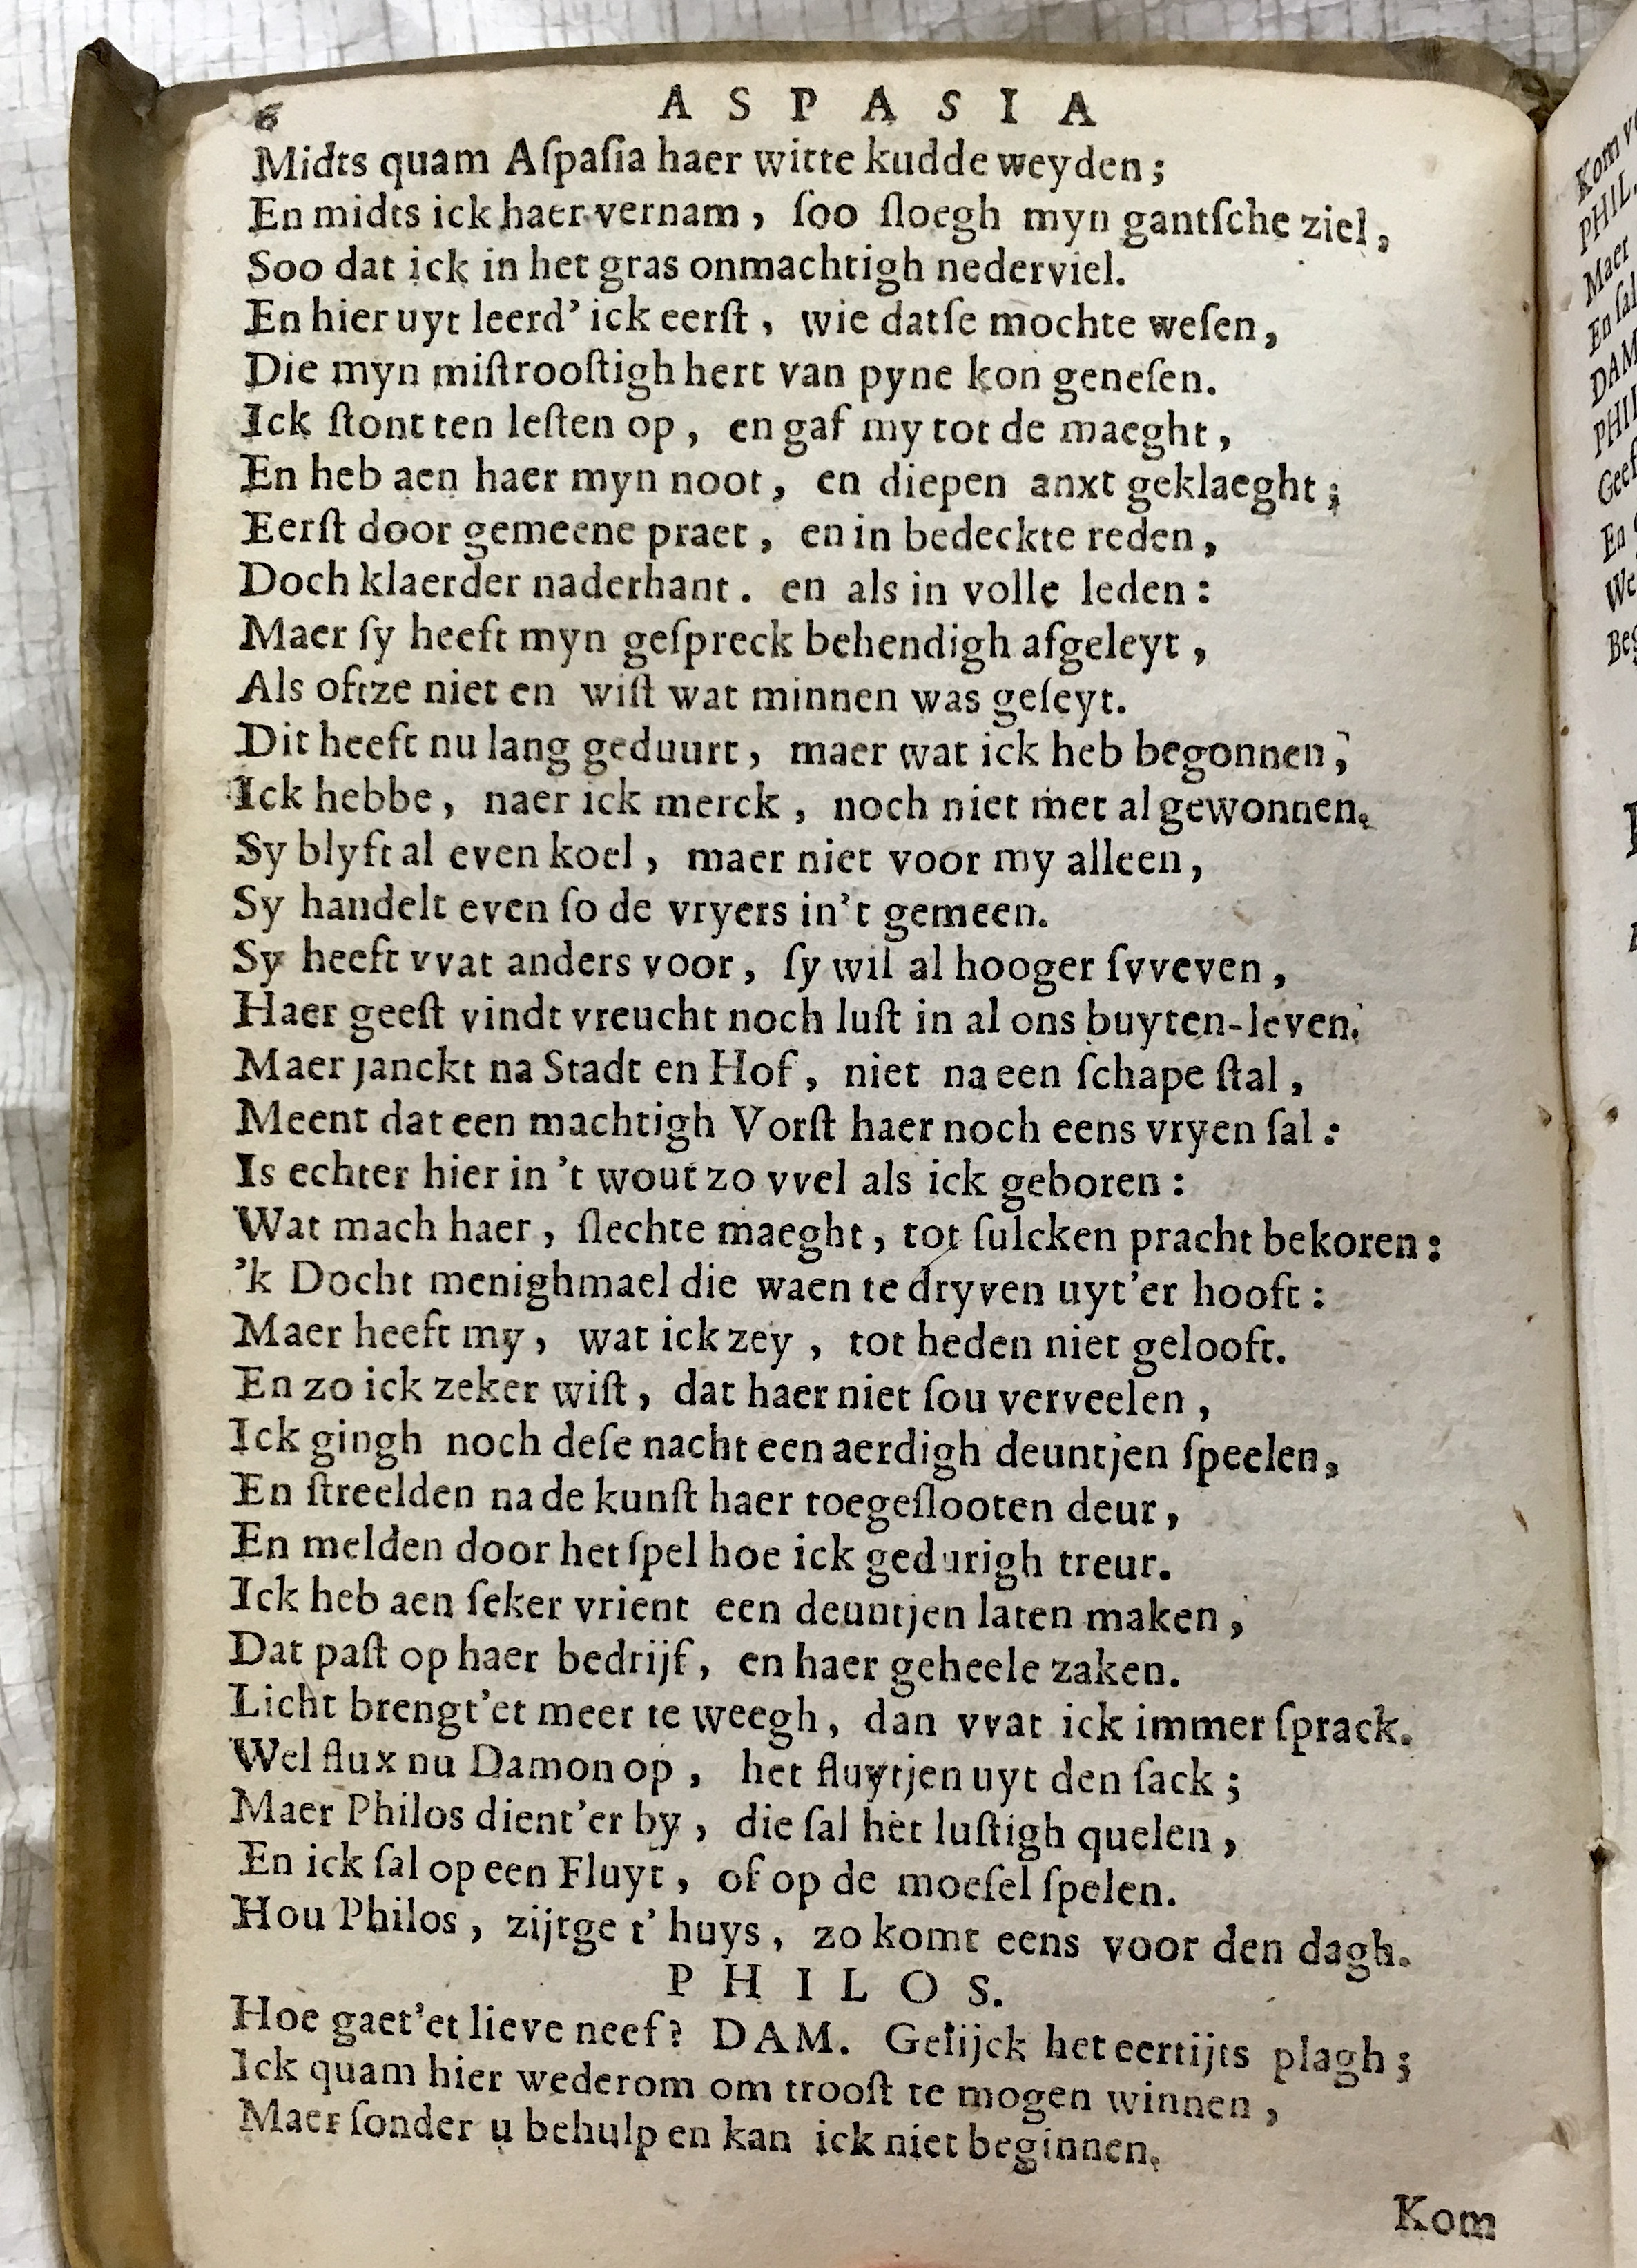 6 ASPASIA
Midts quam Aſpaſia haer witte kudde weyden;
En midts ick haer vernam, ſoo ſloegh myn gantſche ziel,
Soo dat ick in het gras onmachtigh nederviel.
En hier uyt leerd' ick eerſt, wie datſe mochte weſen,
Die myn miſtrooſtigh hert van pyne kon geneſen.
Ick ſtont ten leſten op, en gaf my tot de maeght,
En heb aen haer myn noot, en diepen anxt geklaeght;
Eerſt door gemeene praet, en in bedeckte reden,
Doch klaerder naderhant. en als in volle leden:
Maer ſy heeft myn geſpreck behendigh afgeleyt,
Als oftze niet en wiſt wat minnen was geſeyt.
Dit heeft nu lang geduurt, maer wat ick heb begonnen,
Ick hebbe, naer ick merck, noch niet met al gewonnen.
Sy blyft al even koel, maer niet voor my alleen,
Sy handelt even ſo de vryers in't gemeen.
Sy heeft vvat anders voor, ſy wil al hooger ſvveven,
Haer geeſt vindt vreucht noch luſt in al ons buyten-leven.
Maer janckt na Stadt en Hof, niet na een ſchape ſtal,
Meent dat een machtigh Vorſt haer noch eens vryen ſal:
Is echter hier in 't wout zo vvel als ick geboren:
Wat mach haer, ſlechte maeght, tot ſulcken pracht bekoren:
'k Docht menighmael die waen te dryven uyt'er hooft:
Maer heeft my, wat ick zey, tot heden niet gelooft.
En zo ick zeker wiſt, dat haer niet ſou verveelen,
Ick gingh noch deſe nacht een aerdigh deuntjen ſpeelen,
En ſtreelden na de kunſt haer toegeſlooten deur,
En melden door het ſpel hoe ick gedurigh treur.
Ick heb aen ſeker vrient een deuntjen laten maken,
Dat paſt op haer bedrijf, en haer geheele zaken.
Licht brengt'et meer te weegh, dan vvat ick immer ſprack.
Wel flux nu Damon op, het fluytjen uyt den ſack;
Maer Philos dient'er by, die ſal het luſtigh quelen,
En ick ſal op een Fluyt, of op de moeſel ſpelen.
Hou Philos, zijtge t' huys, zo komt eens voor den dagh.
PHILOS.
Hoe gaet'et lieve neef? DAM. Gelijck het eertijts plagh;
Ick quam hier wederom om trooſt te mogen winnen,
Maer ſonder u behulp en kan ick niet beginnen.
Kom
Kom
PHIL.
Maer
En ſal
DAM
PHIL
Geef
En
We
Beg